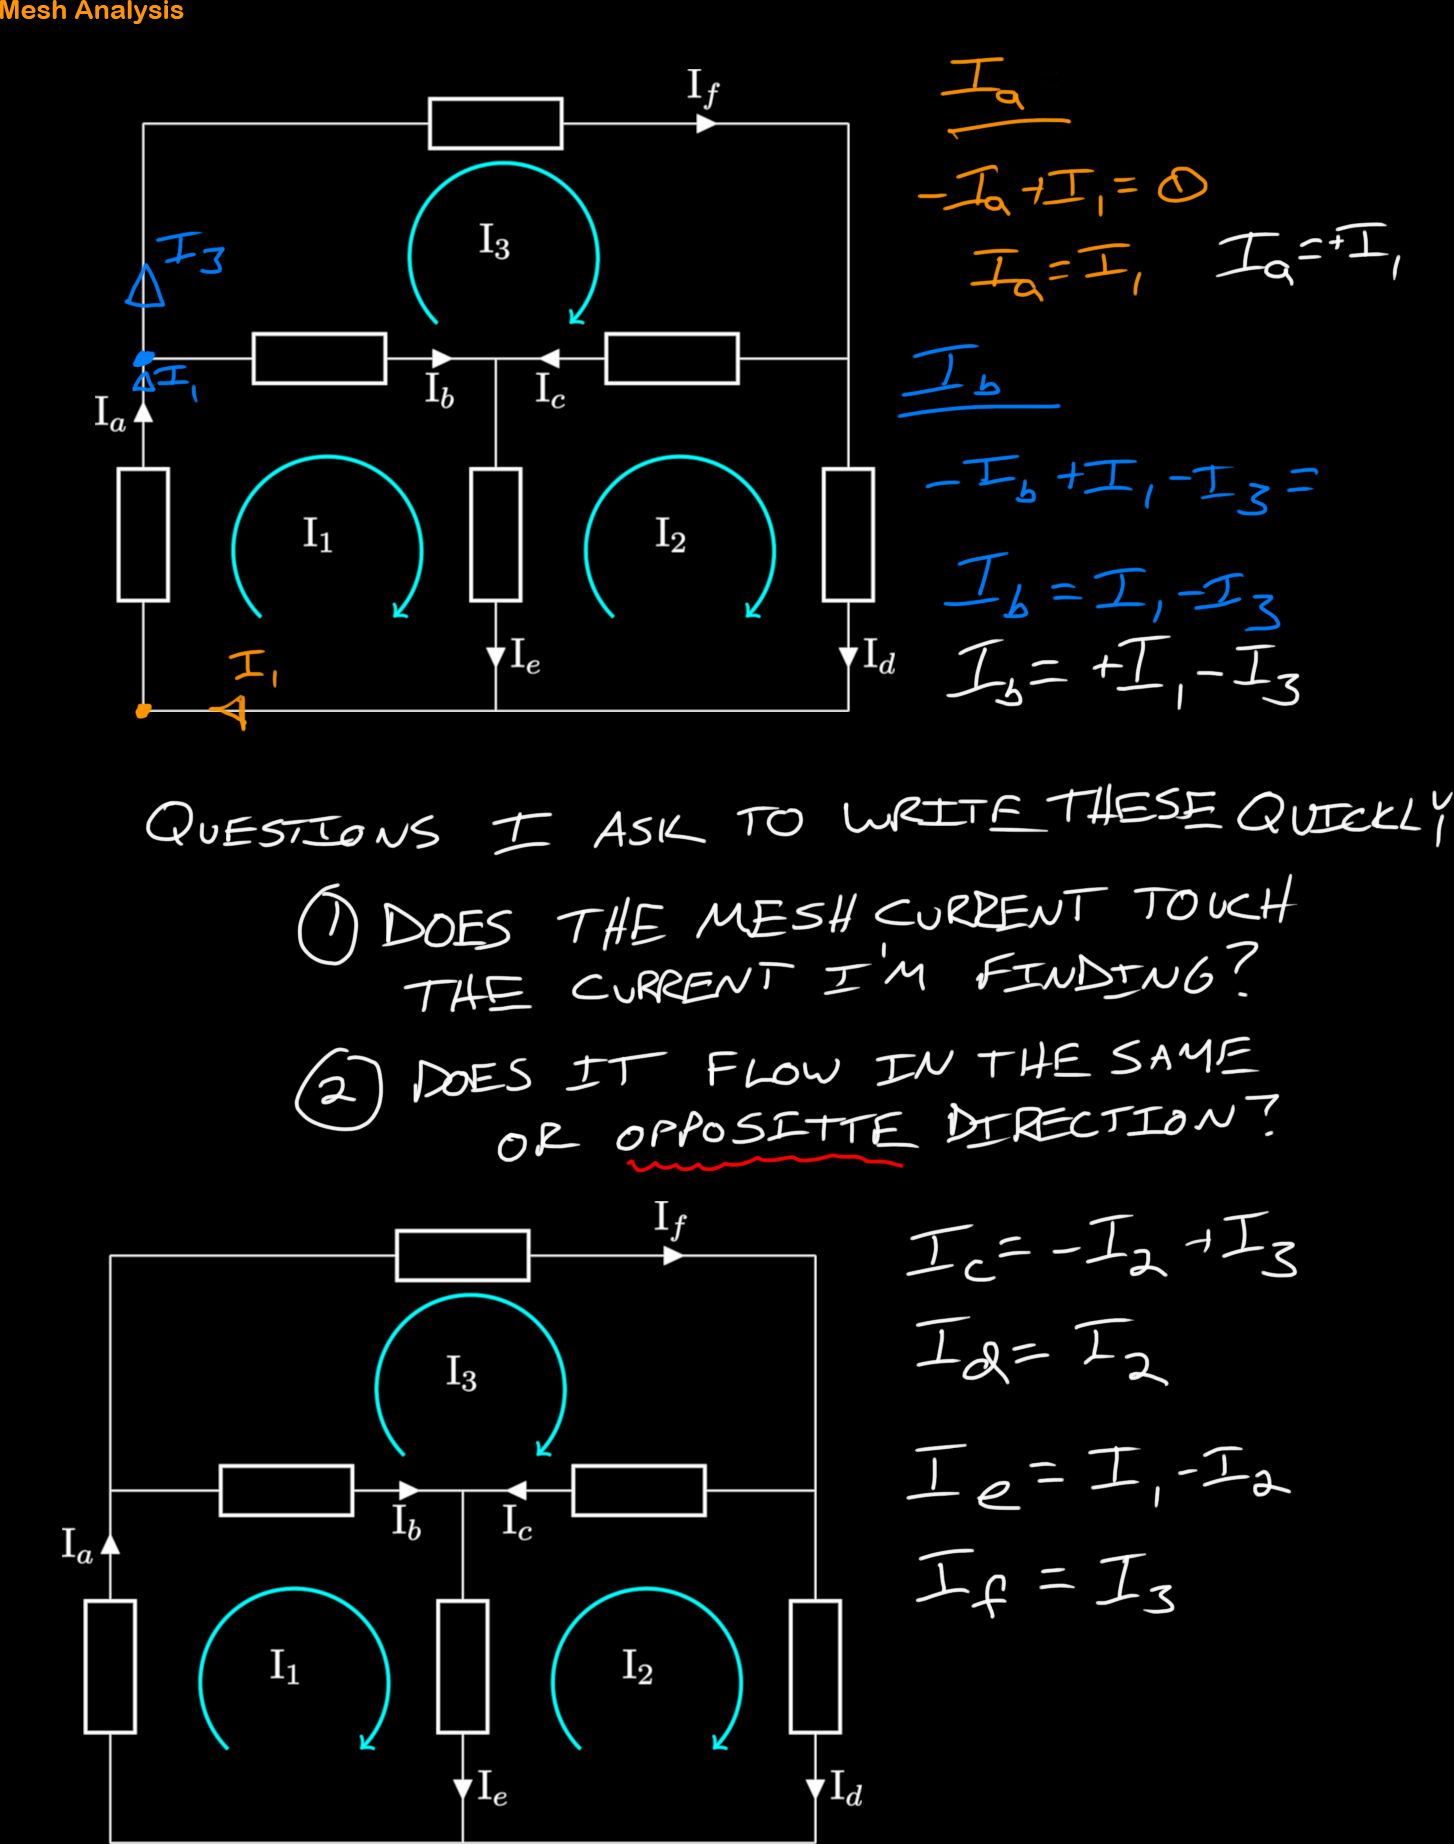 Mesh Analysis
I_f
I_a
-I_a + I_1 = 0
I_3
I_3
I_a = I_1
I_a = +I_1
I_1
I_b
I_c
I_b
I_a
-I_b + I_1 - I_3 =
I_1
I_2
I_b = I_1 - I_3
I_1
I_e
I_d
I_b = +I_1 - I_3
QUESTIONS I ASK TO WRITE THESE QUICKLY
① DOES THE MESH CURRENT TOUCH
THE CURRENT I'M FINDING?
② DOES IT FLOW IN THE SAME
OR OPPOSITTE DIRECTION?
I_f
I_c = -I_2 + I_3
I_3
I_d = I_2
I_b
I_c
I_e = I_1 - I_2
I_a
I_f = I_3
I_1
I_2
I_e
I_d